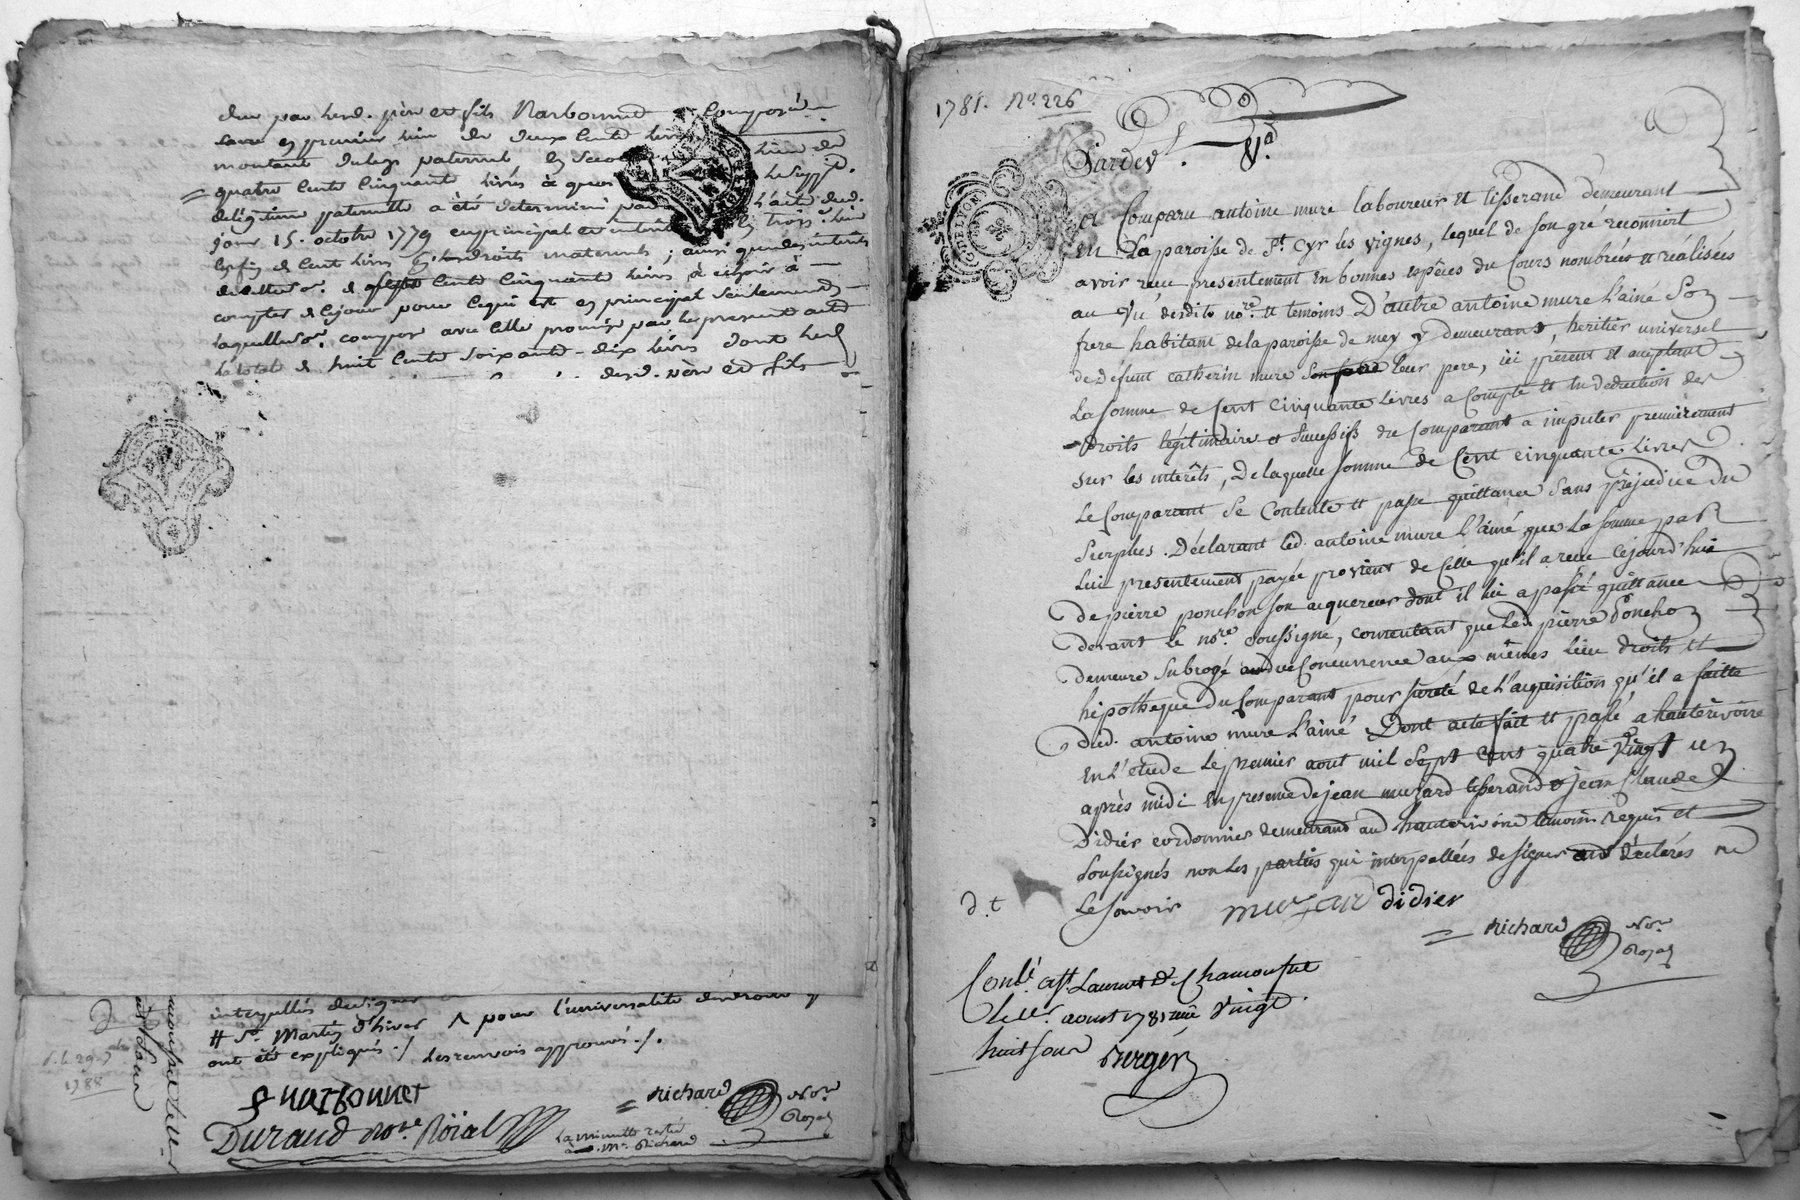 deu par lesd. père et fils Narbonnet composé
savoir en premier lieu de deux cents livres
montant du legs paternel, en second lieu de
quatre cents cinquante livres à quoi le suppt.
de légitime paternelle a été determiné par l'acte dud.
jour 15. octobre 1779 en principal et interets en trois.e lieu
enfin de cent livres pr. les droits maternels; ainsi que des interêts
de cent cinquante livres à échoir à
compter de ce jour pour ce qui est en principal seulement
laquelle composé avec celle promise par le present acte
le total de huit cents soixante-dix livres dont lesd.
desd. père et fils
interpellés de signer
# St. Martin d'hiver ^ pour l'universalité des droits
ont été expliqués ./. Les renvois approuvés ./.
1788
narbonnet
richard No.re Royal
Durand no.re Roïal
La minutte restée
à M.e Richard
1781. No. 226
Pardev.t
a Comparu antoine mure laboureur et tisserand demeurant
en La paroisse de St. Cyr les vignes, lequel de son gre reconnoit
avoir reçu presentement en bonnes espèces du Cours nombrées et réalisées
au vu desdits no.re et temoins D'autre antoine mure L'ainé Son
frere habitant de la paroisse de mey y demeurant, heritier universel
de Défunt catherin mure leur pere, ici présent et acceptant
La somme de Cent Cinquante Livres a Compte et en deduction des
droits légitimaire et Successifs du Comparant a imputer premièrement
sur les intérêts, De laquelle somme de Cent cinquante Livres
Le Comparant Se Contente et passe quittance Sans préjudice du
Surplus. Déclarant led. antoine mure L'ainé que La somme par
Lui presentement payée provient de Celle qu'il a reçue Cejourd'hui
De pierre ponchon son acquereur dont il lui a passé quittance
devant le no.re soussigné, consentant que Led. pierre Ponchon
demeure Subrogé Concurrence aux mêmes Lieu droits et
hipotheque du Comparant pour sûreté de L'acquisition qu'il a faitte
dud. antoine mure L'ainé. Dont acte fait et passé a hauterivoire
en L'etude Le premier aout mil sept cent quatre vingt un
après midi En presence de jean muzard tisserand & jean Claude
Didier cordonnier demeurant aud. hauterivoire temoins Requis et
Soussignés non Les parties qui interpellées de signer ont déclarés ne
Le savoir muzard didier
d.t
richard No.re Royal
Conlé. a St. Laurent De Chamousset
Le aoust 1781 reçu Vingt
huit sous Berger